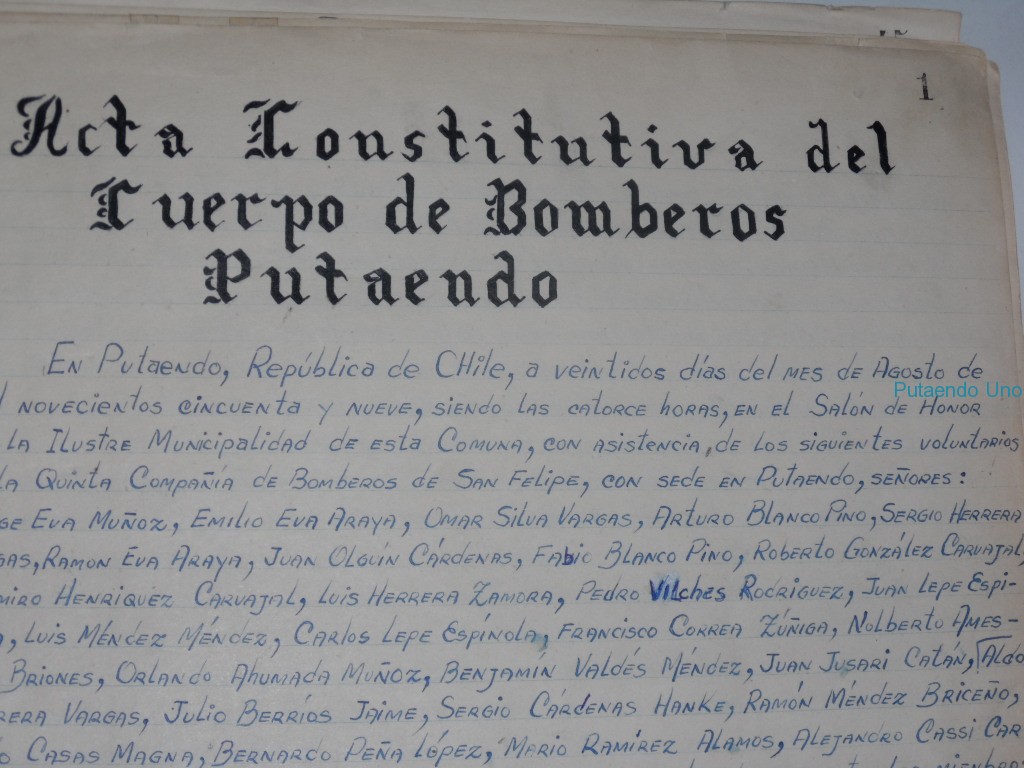 1
Acta Constitutiva del
Cuerpo de Bomberos
Putaendo
En Putaendo, República de CHile, a veintidos días del mes de Agosto de
Putaendo Uno
novecientos cincuenta y nueve, siendo las catorce horas, en el Salón de Honor
la Ilustre Municipalidad de esta Comuna, con asistencia, de los siguientes voluntarios
la Quinta Compañía de Bomberos de San Felipe, con sede en Putaendo, señores:
ge Eva Muñoz, Emilio Eva Araya, Omar Silva Vargas, Arturo Blanco Pino, Sergio Herrera
gas, Ramon Eva Araya, Juan Olguín Cárdenas, Fabio Blanco Pino, Roberto González Carvajal,
miro Henriquez Carvajal, Luis Herrera Zamora, Pedro Vilches Rodriguez, Juan Lepe Espi-
a, Luis Méndez Méndez, Carlos Lepe Espínola, Francisco Correa Zúñiga, Nolberto Ames-
Briones, Orlando Ahumada Muñoz, Benjamín Valdés Méndez, Juan Jusari Catán, Aldo
rera Vargas, Julio Berríos Jaime, Sergio Cárdenas Hanke, Ramón Méndez Briceño,
o Casas Magna, Bernardo Peña López, Mario Ramírez Alamos, Alejandro Cassi Car